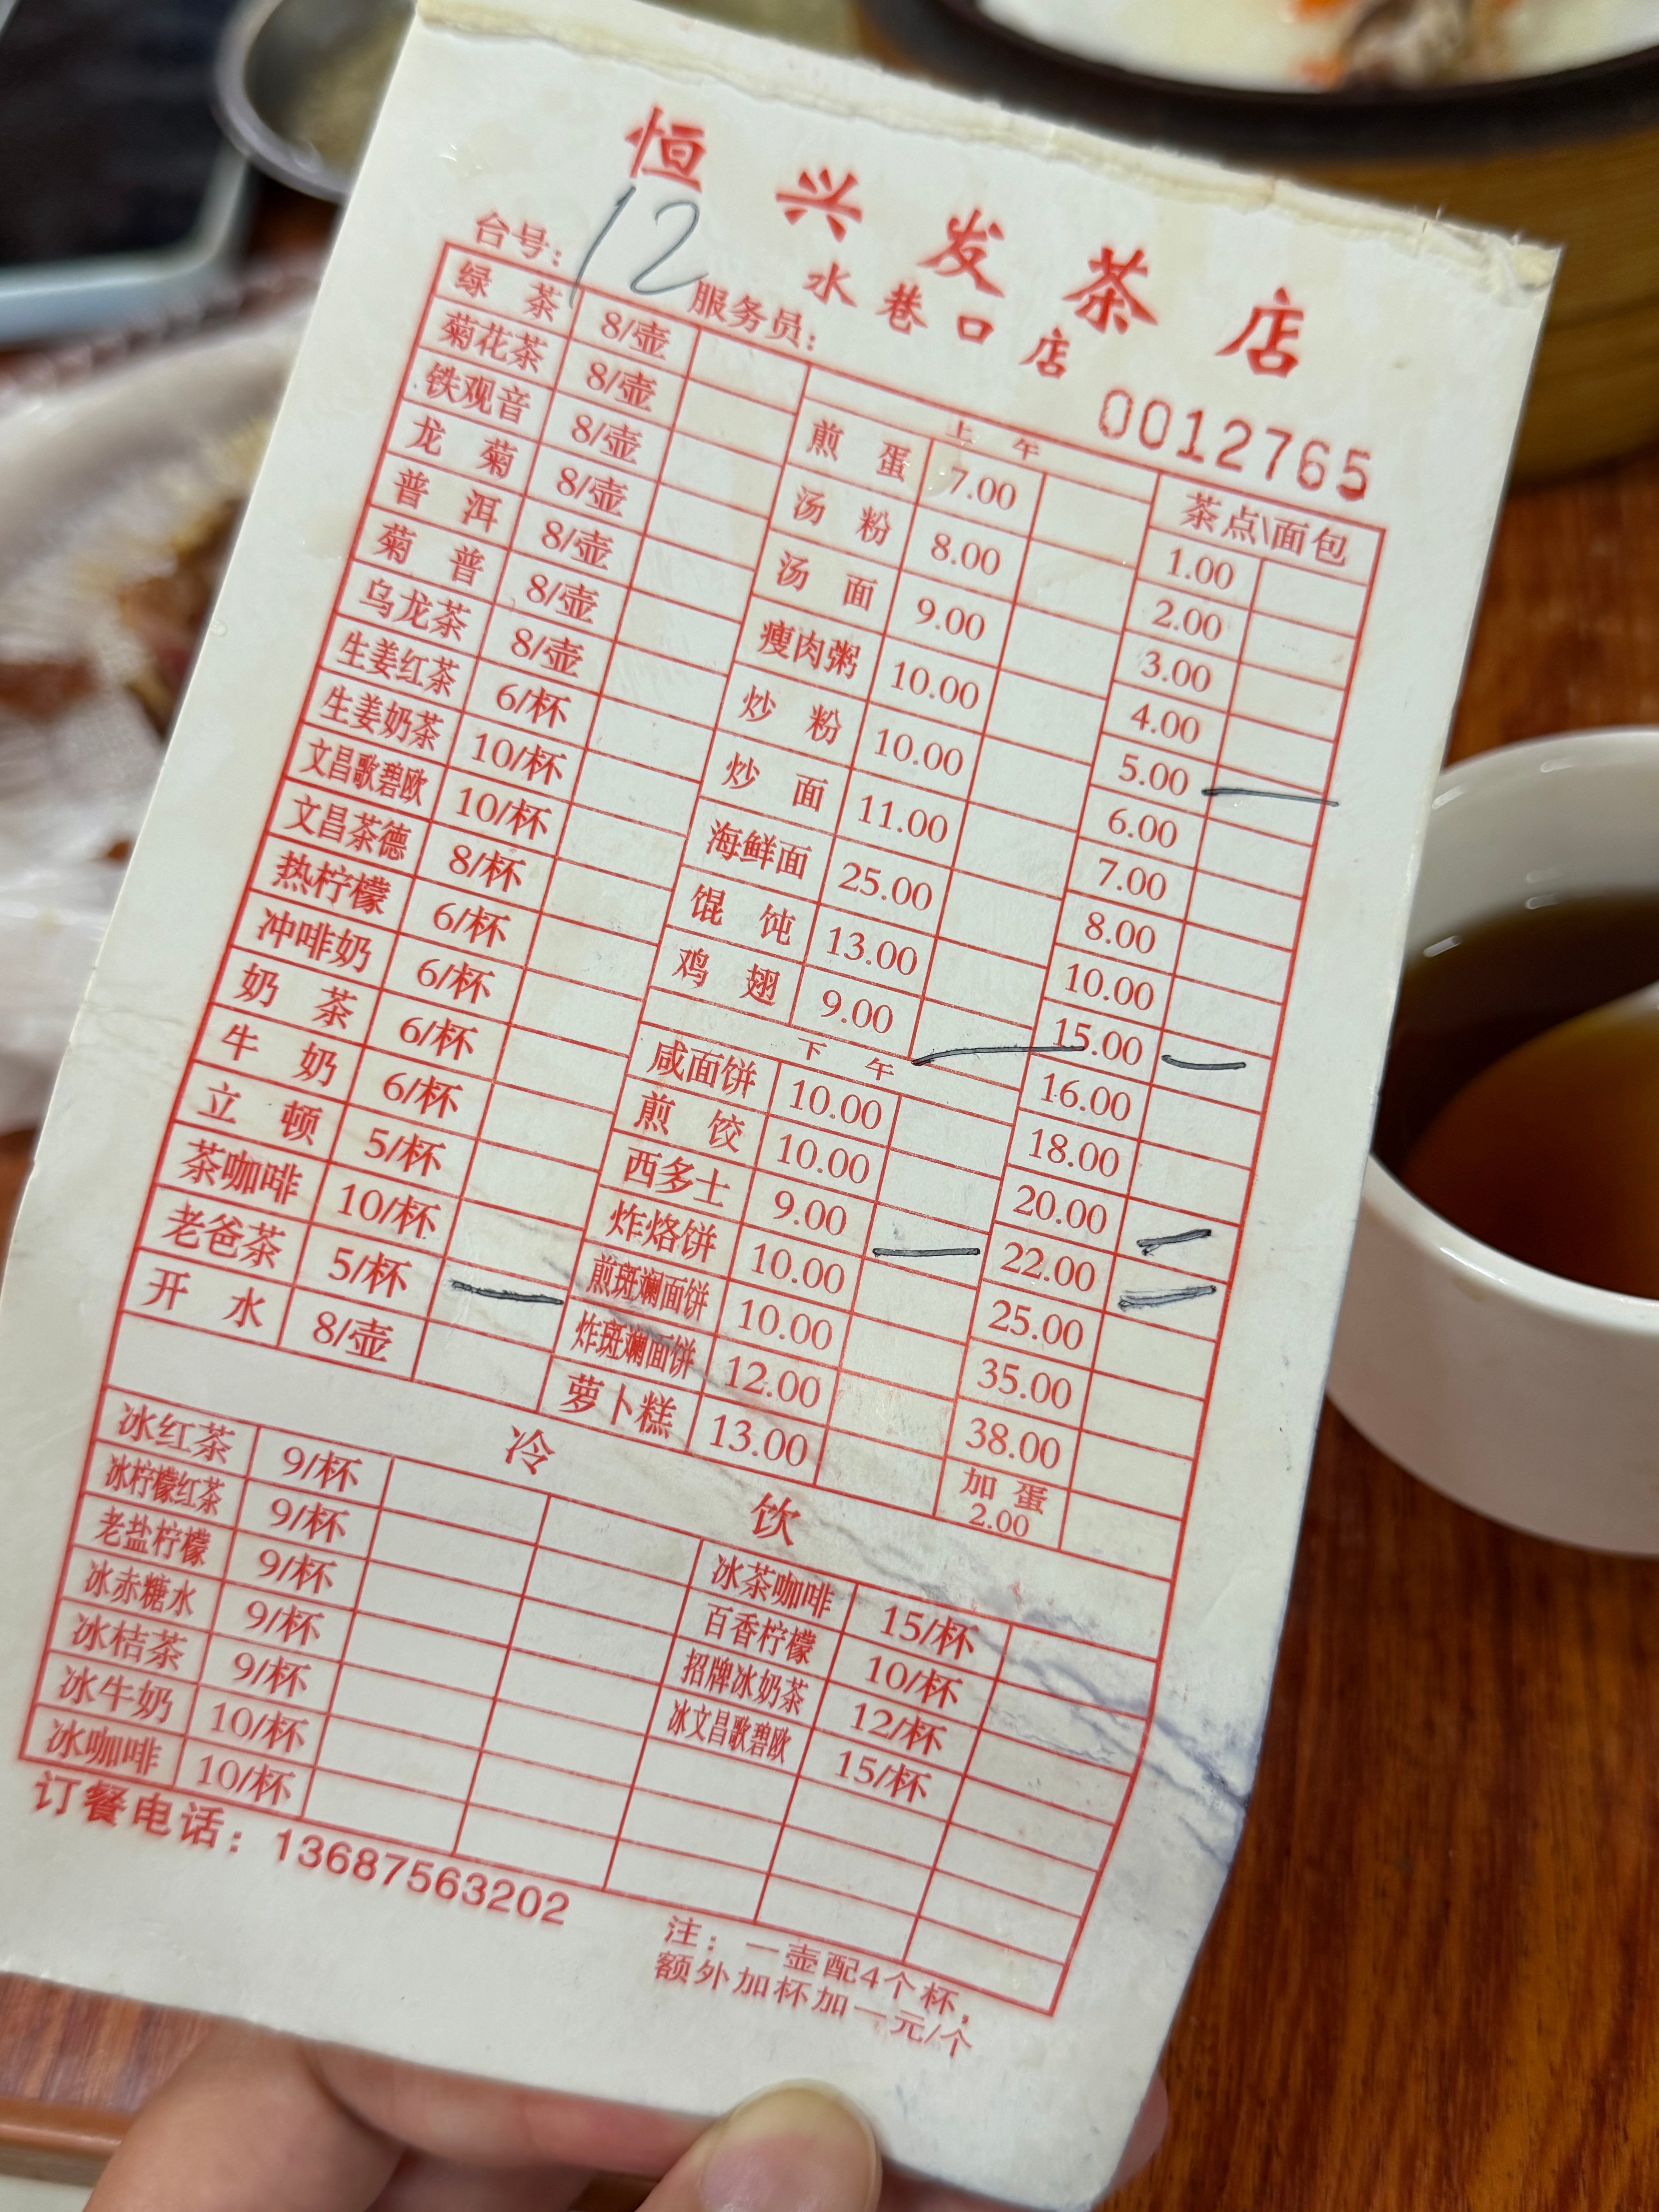 恒兴发茶店
水巷口店
台号：12 服务员：
0012765
绿茶 8/壶
菊花茶 8/壶
铁观音 8/壶
龙菊 8/壶
普洱 8/壶
菊普 8/壶
乌龙茶 8/壶
生姜红茶 6/杯
生姜奶茶 10/杯
文昌歌碧欧 10/杯
文昌茶德 8/杯
热柠檬 6/杯
冲啡奶 6/杯
奶茶 6/杯
牛奶 6/杯
立顿 5/杯
茶咖啡 10/杯
老爸茶 5/杯
开水 8/壶
上午
煎蛋 7.00
汤粉 8.00
汤面 9.00
瘦肉粥 10.00
炒粉 10.00
炒面 11.00
海鲜面 25.00
馄饨 13.00
鸡翅 9.00
下午
咸面饼 10.00
煎饺 10.00
西多士 9.00
炸烙饼 10.00
煎斑斓面饼 10.00
炸斑斓面饼 12.00
萝卜糕 13.00
茶点\面包
1.00
2.00
3.00
4.00
5.00
6.00
7.00
8.00
10.00
15.00
16.00
18.00
20.00
22.00
25.00
35.00
38.00
加蛋
2.00
冷饮
冰红茶 9/杯
冰柠檬红茶 9/杯
老盐柠檬 9/杯
冰赤糖水 9/杯
冰桔茶 9/杯
冰牛奶 10/杯
冰咖啡 10/杯
冰茶咖啡 15/杯
百香柠檬 10/杯
招牌冰奶茶 12/杯
冰文昌歌碧欧 15/杯
订餐电话：13687563202
注：一壶配4个杯，
额外加杯加一元/个